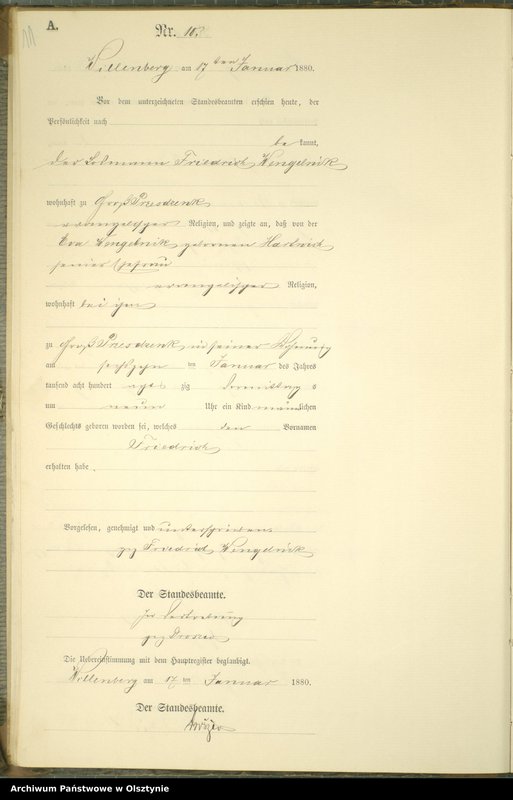 A.
11
Nr. 10.
Willenberg am 17 ten Januar 1880.
Vor dem unterzeichneten Standesbeamten erschien heute, der
Persönlichkeit nach
be kannt,
der Losmann Friedrich Wengelnik
wohnhaft zu Groß Przesdzenk
evangelischer Religion, und zeigte an, daß von der
Eva Wengelnik geborenen
seiner Ehefrau
evangelischer Religion,
wohnhaft bei ihm
zu Groß Przesdzenk in seiner Wohnung
am sechszehn ten Januar des Jahres
tausend acht hundert acht zig Vormittag s
um neun Uhr ein Kind männlichen
Geschlechts geboren worden sei, welches den Vornamen
Friedrich
erhalten habe.
Vorgelesen, genehmigt und unterschrieben
gez Friedrich Wengelnik
Der Standesbeamte.
In Vertretung
gez
Die Uebereinstimmung mit dem Hauptregister beglaubigt.
Willenberg am 17 ten Januar 1880.
Der Standesbeamte.
Archiwum Państwowe w Olsztynie